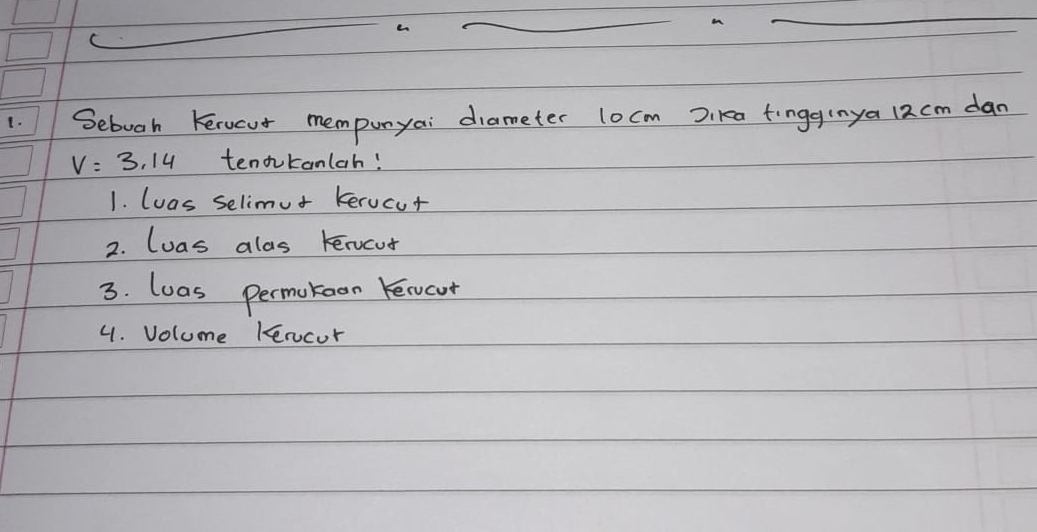 1. Sebuah Kerucut mempunyai diameter 10cm Jika tingginya 12cm dan
V = 3,14 tentukanlah!
1. Luas Selimut Kerucut
2. Luas alas Kerucut
3. Luas Permukaan Kerucut
4. Volume Kerucut